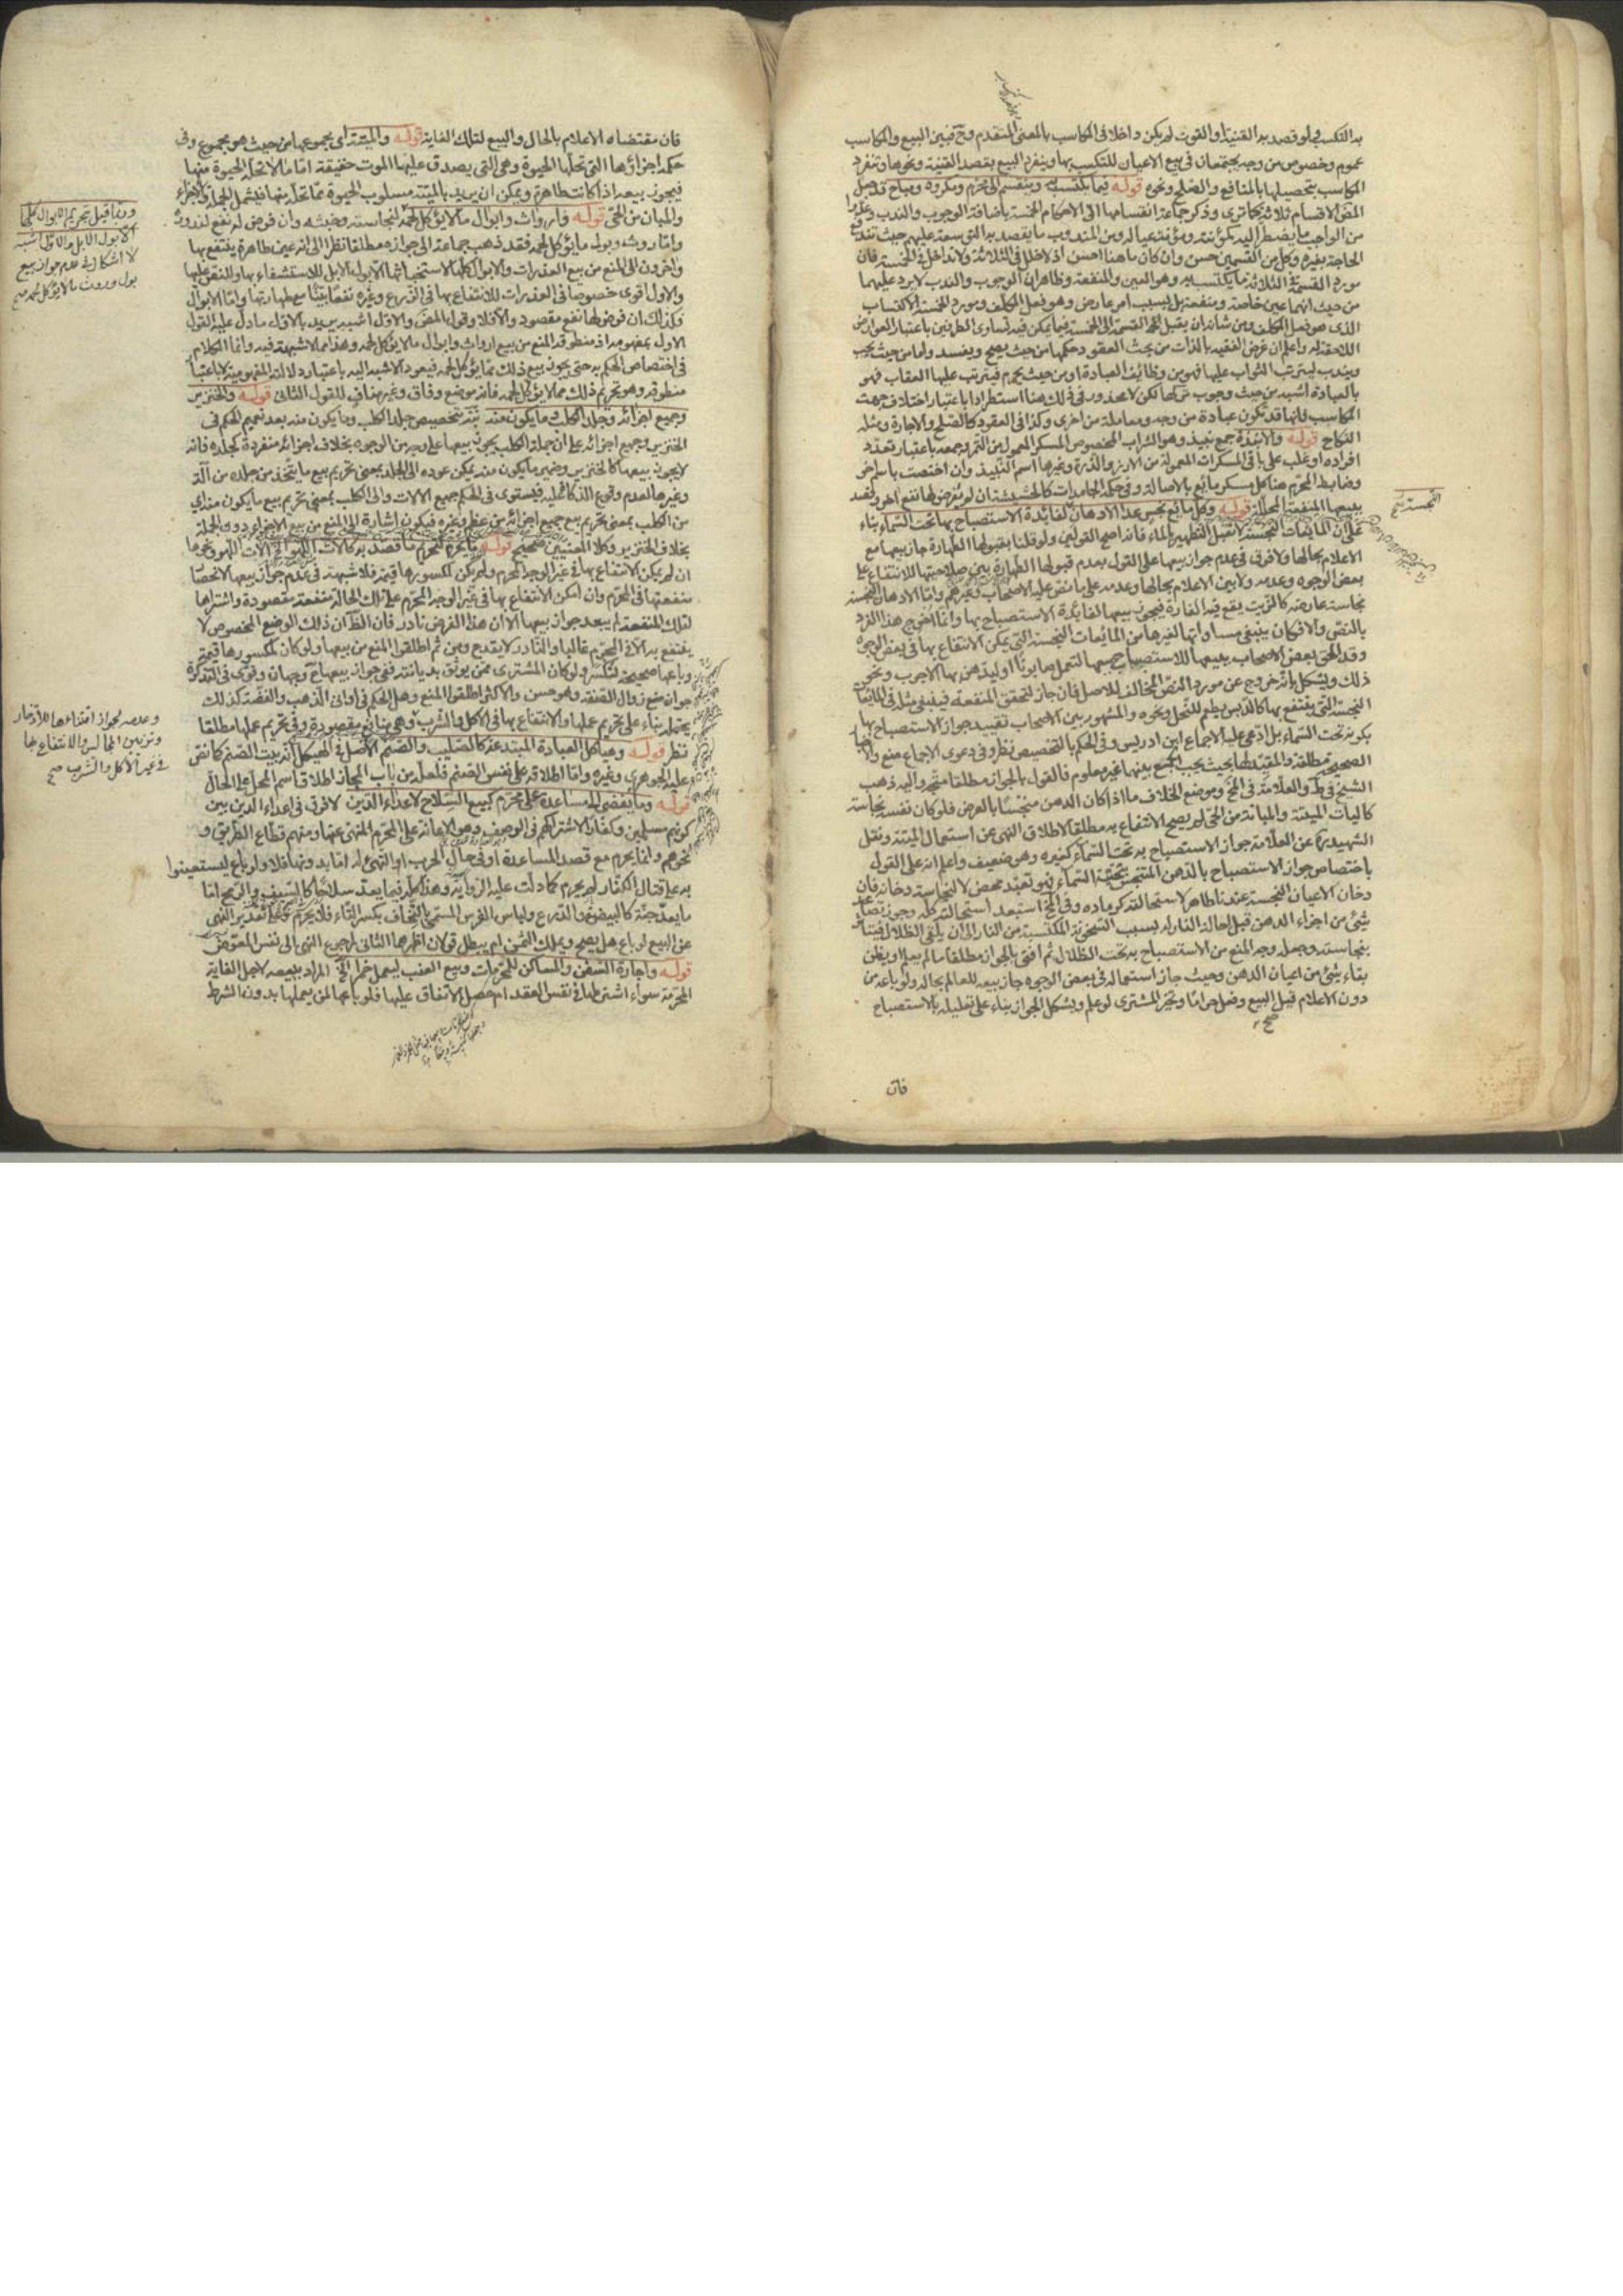 به التكسب فلو قصد به القنية او القوت لم يكن داخلا في المكاسب بالمعنى المتقدم وح فبين البيع والمكاسب
عموم وخصوص من وجه يجتمعان في بيع الاعيان للتكسب بها وينفرد البيع بقصد القنية ونحوها وتنفرد
المكاسب بتحصيلها بالمنافع والصلح ونحوه قوله فيما يكتسب به وينقسم الى محرم ومكروه ومباح قد جعل
المص الاقسام ثلاثة كما ترى وذكر جماعة انقسامها الى الاحكام الخمسة باضافة الوجوب والندب وعدوا
من الواجب ما يضطر اليه لمؤنته ومؤنة عياله ومن المندوب ما يقصد به التوسعة عليهم حيث تندفع
الحاجة بغيره وكل من القسمين حسن وان كان ما هنا احسن اذ لا خلل في الثلاثة ولا تداخل في الخمسة فان
مورد القسمة في الثلاثة ما يكتسب به وهو العين والمنفعة وظاهر ان الوجوب والندب لا يرد عليهما
من حيث انهما عين خاصة ومنفعة بل بسبب امر عارض وهو فعل المكلف ومورد الخمسة الاكتساب
الذي هو فعل المكلف ومن شانه ان يقبل القسمة الى الخمسة فيما يمكن فيه تساوي الطرفين باعتبار العوارض
اللاحقة له واعلم ان غرض الفقيه بالذات من بحث العقود حكمها من حيث يصح ويفسد واما من حيث يجب
ويندب ليترتب الثواب عليها فهو من وظائف العبادة او من حيث يحرم فيترتب عليها العقاب فهو
بالعبادة اشبه من حيث وجوب تركها لكن لا محذور في ذلك هنا استطرادا باعتبار اختلاف جهت
المكاسب فانها قد تكون عبادة من وجه ومعاملة من اخرى وكذا في العقود كالصلح والاجارة ومثله
النكاح قوله والانبذة جمع نبيذ وهو الشراب المخصوص المسكر المعمول من التمر وجمعه باعتبار تعدد
افراده او غلب على باقي المسكرات المعمولة من الارز والذرة وغيرها اسم النبيذ وان اختصت باسم اخر
وضابط المحرم هنا كل مسكر مايع بالاصالة وفي حكمه الجامدات كالحشيشة ان لم يفرض لها نفع اخر وقصد
ببيعها المنفعة المحللة قوله وكل مايع نجس عدا الادهان لفائدة الاستصباح بها تحت السماء بناء
على ان المايعات النجسة لا تقبل التطهير بالماء فانه اصح القولين ولو قلنا بقبولها الطهارة جاز بيعها مع
النجسة صح
الاعلام بحالها ولا فرق في عدم جواز بيعها على القول بعدم قبولها الطهارة بين صلاحيتها للانتفاع على
بعض الوجوه وعدمه ولا بين الاعلام بحالها وعدمه على ما نص عليه الاصحاب وغيرهم واما الادهان النجسة
نجاسة عارضة كالزيت يقع فيه الفارة فيجوز بيعها لفائدة الاستصباح بها وانما اخرج هذا الفرد
بالنص والا فكان ينبغي مساواتها لغيرها من المائعات النجسة التي يمكن الانتفاع بها في بعض الوجوه
وقد الحق بعض الاصحاب ببيعها للاستصباح بيعها لتعمل صابونا او ليدهن بها الاجرب ونحو
ذلك ويشكل بانه خروج عن مورد النص المخالف للاصل فان جاز لتحقق المنفعة فينبغي مثله في المايعات
النجسة التي ينتفع بها كالدبس يطعم للنحل ونحوه والمشهور بين الاصحاب تقييد جواز الاستصباح بها
بكونه تحت السماء بل ادعى عليه الاجماع ابن ادريس وفي الحكم بالتخصيص نظر وفي دعوى الاجماع منع والاخبار
الصحيحة مطلقة والمقيد لها بحيث يجب الجمع بينهما غير معلوم فالقول بالجواز مطلقا متجه واليه ذهب
الشيخ في ط والعلامة في المخ وموضع الخلاف ما اذا كان الدهن متنجسا بالعرض فلو كان نفسه نجاسة
كاليات الميتة والمبانة من الحي لم يصح الانتفاع به مطلقا لاطلاق النهي عن استعمال الميتة ونقل
الشهيد ره عن العلامة جواز الاستصباح به تحت السماء كغيره وهو ضعيف واعلم انه على القول
باختصاص جواز الاستصباح بالدهن المتنجس بتحتية السماء فهو تعبد محض لا لنجاسة دخانه فان
دخان الاعيان النجسة عندنا طاهر لاستحالته كرماده وفي المخ استبعد استحالته كله وجوز تصاعد
شيء من اجزاء الدهن قبل احالة النار له بسبب السخونة المكتسبة من النار الى ان يلقى الظلال فيتاثر
بنجاسته وجعله وجه المنع من الاستصباح به تحت الظلال ثم افتى بالجواز مطلقا ما لم يعلم او يظن
بقاء شيء من اعيان الدهن وحيث جاز استعماله في بعض الوجوه جاز بيعه للعالم بحاله ولو باعه من
دون الاعلام قيل البيع وفعل حراما وتخير المشتري لو علم ويشكل الجواز بناء على تعليله بالاستصباح
صح
فان
فان مقتضاه الاعلام بالحال والبيع لتلك الغاية قوله والميتة اي مجموعها من حيث هو مجموع وفي
حكمه اجزاؤها التي تحلها الحيوة وهي التي يصدق عليها الموت حقيقة اما ما لا تحله الحيوة منها
فيجوز بيعه اذا كانت طاهرة ويمكن ان يريد بالميتة مسلوب الحيوة مما تحله منها فيشمل الجملة والاجزاء
والمبان من الحي قوله وارواث وابوال ما لا يؤكل لحمه لنجاسته وخبثه وان فرض له نفع لندوره
واما روث وبول ما يؤكل لحمه فقد ذهب جماعة الى جوازه مطلقا نظرا الى انه عين طاهرة ينتفع بها
واخرون الى المنع من بيع العذرات والابوال كلها لاستخباثها الا بول الابل للاستشفاء بها وللنص عليها
والاول اقوى خصوصا في العذرات للانتفاع بها في الزرع وغيره نفعا بينا مع طهارتها واما الابوال
فكذلك ان فرض لها نفع مقصود والا فلا وقول المص والاول اشبه يريد بالاول ما دل عليه القول
الاول بمفهومه اذ منطوقه المنع من بيع ارواث وابوال ما لا يؤكل لحمه وهذا مما لا شبهة فيه وانما الكلام
في اختصاص الحكم به حتى يجوز بيع ذلك مما يؤكل لحمه فيعود الاشبه اليه باعتبار دلالته المفهومية لا باعتبار
منطوقه وهو تحريم ذلك مما لا يؤكل لحمه فانه موضع وفاق وغير مناف للقول الثاني قوله والخنزير
وجميع اجزائه وجلد الكلب وما يكون منه نبه بتخصيص جلد الكلب وما يكون منه بعد تعميم الحكم في
الخنزير وجميع اجزائه على ان جملة الكلب يجوز بيعها على وجه من الوجوه بخلاف اجزائه منفردة كجلده فانه
لا يجوز بيعها كالخنزير وضمير ما يكون منه يمكن عوده الى الجلد بمعنى تحريم بيع ما يتخذ من جلده من آلة
وغيرها لعدم وقوع الذكاة عليه فيستوي في الحكم جميع الالات والى الكلب بمعنى تحريم بيع ما يكون منه اي
من الكلب بمعنى تحريم بيع جميع اجزائه من عظم وغيره فيكون اشارة الى المنع من بيع الاجزاء دون الجملة
بخلاف الخنزير وكلا المعنيين صحيح قوله ما يحرم لتحريم ما قصد به كالات اللهو الخ الات اللهو ونحوها
ان لم يمكن الانتفاع بها في غير الوجه المحرم ولم يكن لمكسورها قيمة فلا شبهة في عدم جواز بيعها لانحصار
منفعتها في المحرم وان امكن الانتفاع بها في غير الوجه المحرم على تلك الحالة منفعة مقصودة واشتراها
لتلك المنفعة لم يبعد جواز بيعها الا ان هذا الفرض نادر فان الظ ان ذلك الوضع المخصوص لا
ينتفع به الا في المحرم غالبا والنادر لا يقدح ومن ثم اطلقوا المنع من بيعها ولو كان لمكسورها قيمة
وباعها صحيحة لتكسر وكان المشتري ممن يوثق بديانته ففي جواز بيعها ح وجهان وقوى في التذكرة
جوازه مع زوال الصفة وهو حسن والاكثر اطلقوا المنع وهل الحكم في اواني الذهب والفضة كذلك
يحتمله بناء على تحريم عملها والانتفاع بها في الاكل والشرب وهي منافع مقصودة وفي تحريم عملها مطلقا
نظر قوله وهياكل العبادة المبتدعة كالصليب والصنم الاصل في الهيكل انه بيت الصنم كما نص
عليه الجوهري وغيره واما اطلاقه على نفس الصنم فلعله من باب المجاز اطلاقا لاسم المحل على الحال
قوله وما يفضي الى مساعدة على محرم كبيع السلاح لاعداء الدين لا فرق في اعداء الدين بين
كونهم مسلمين وكفارا لاشتراكهم في الوصف وهو الاعانة على المحرم المنهي عنها ومنهم قطاع الطريق و
نحوهم وانما يحرم مع قصد المساعدة او في حال الحرب او التهيؤ له اما بدونها فلا ولو باع ليستعينوا
به على قتال الكفار لم يحرم كما دلت عليه الرواية وهذا كله فيما يعد سلاحا كالسيف والرمح اما
ما يعد جنة كالبيضة والدرع ولباس الفرس المسمى بالتجفاف بكسر التاء فلا يحرم وعلى تقدير النهي
عن البيع لو باع هل يصح ويملك الثمن ام يبطل قولان اظهرهما الثاني لرجوع النهي الى نفس المعوض
قوله واجارة السفن والمساكن للمحرمات وبيع العنب ليعمل خمرا الخ المراد ببيعه لاجل الغاية
المحرمة سواء اشترطها في نفس العقد ام حصل الاتفاق عليها فلو باعها لمن يعملها بدون الشرط
وربما قيل بتحريم الابوال كلها
الا بول الابل والاول اشبه
لا اشكال في عدم جواز بيع
بول وروث ما لا يؤكل لحمه صح
وعدمه لجواز اقتنائها للادخار
وتزيين المجالس والانتفاع بها
في غير الاكل والشرب صح